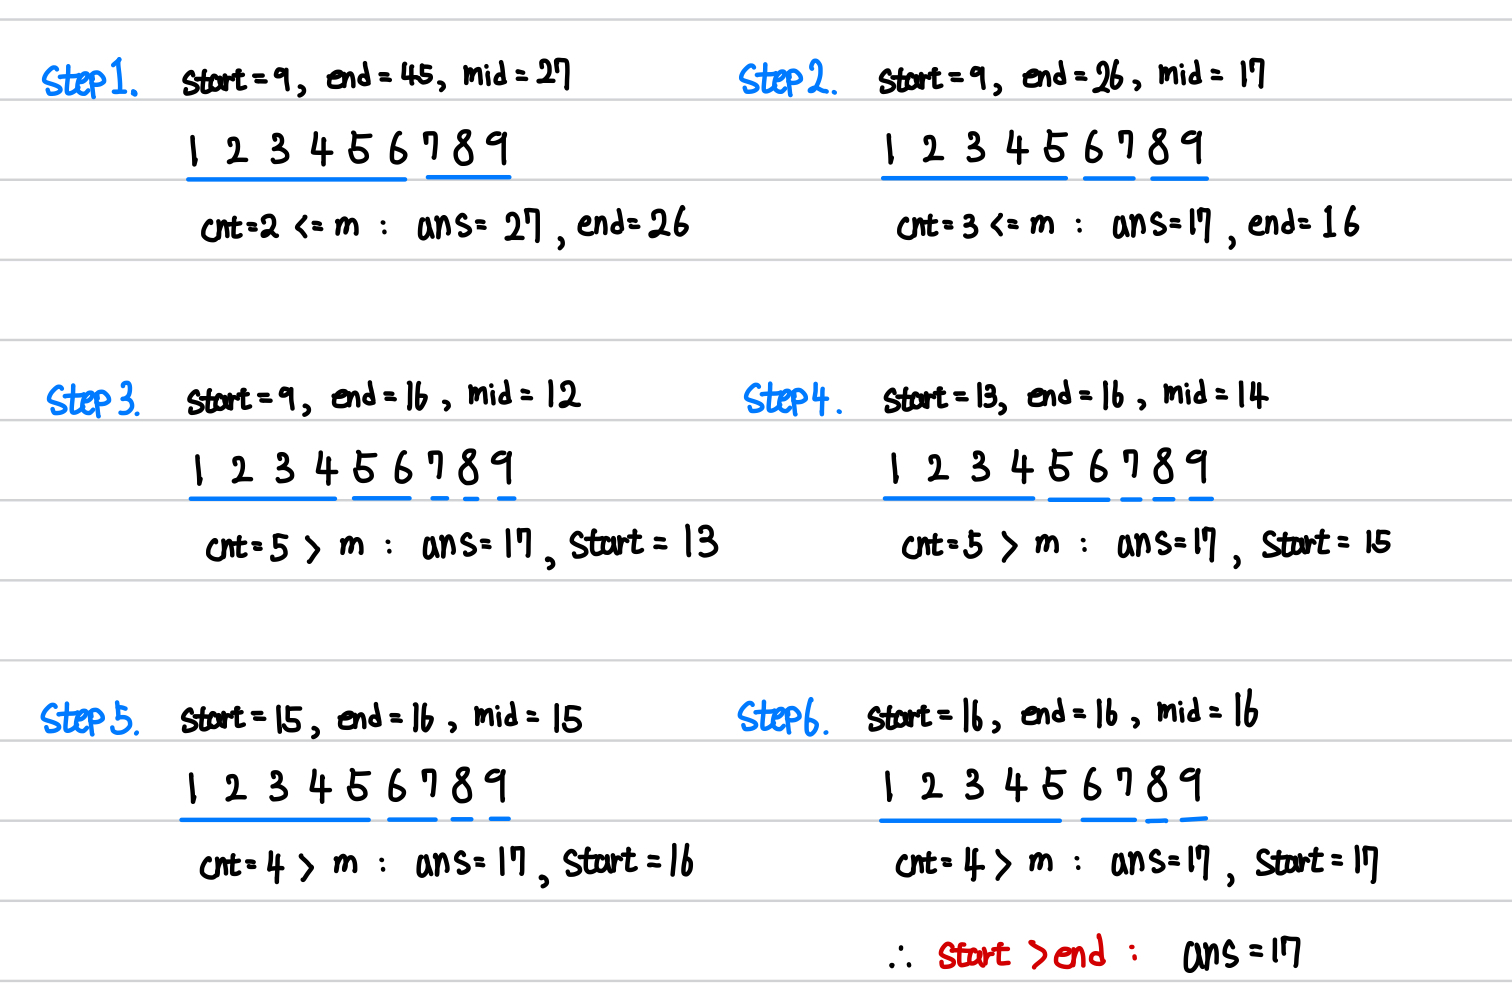 Step 1. start = 9, end = 45, mid = 27
1 2 3 4 5 6 7 8 9
cnt = 2 <= m : ans = 27, end = 26
Step 2. start = 9, end = 26, mid = 17
1 2 3 4 5 6 7 8 9
cnt = 3 <= m : ans = 17, end = 16
Step 3. start = 9, end = 16, mid = 12
1 2 3 4 5 6 7 8 9
cnt = 5 > m : ans = 17, start = 13
Step 4. start = 13, end = 16, mid = 14
1 2 3 4 5 6 7 8 9
cnt = 5 > m : ans = 17, start = 15
Step 5. start = 15, end = 16, mid = 15
1 2 3 4 5 6 7 8 9
cnt = 4 > m : ans = 17, start = 16
Step 6. start = 16, end = 16, mid = 16
1 2 3 4 5 6 7 8 9
cnt = 4 > m : ans = 17, start = 17
∴ start > end : ans = 17